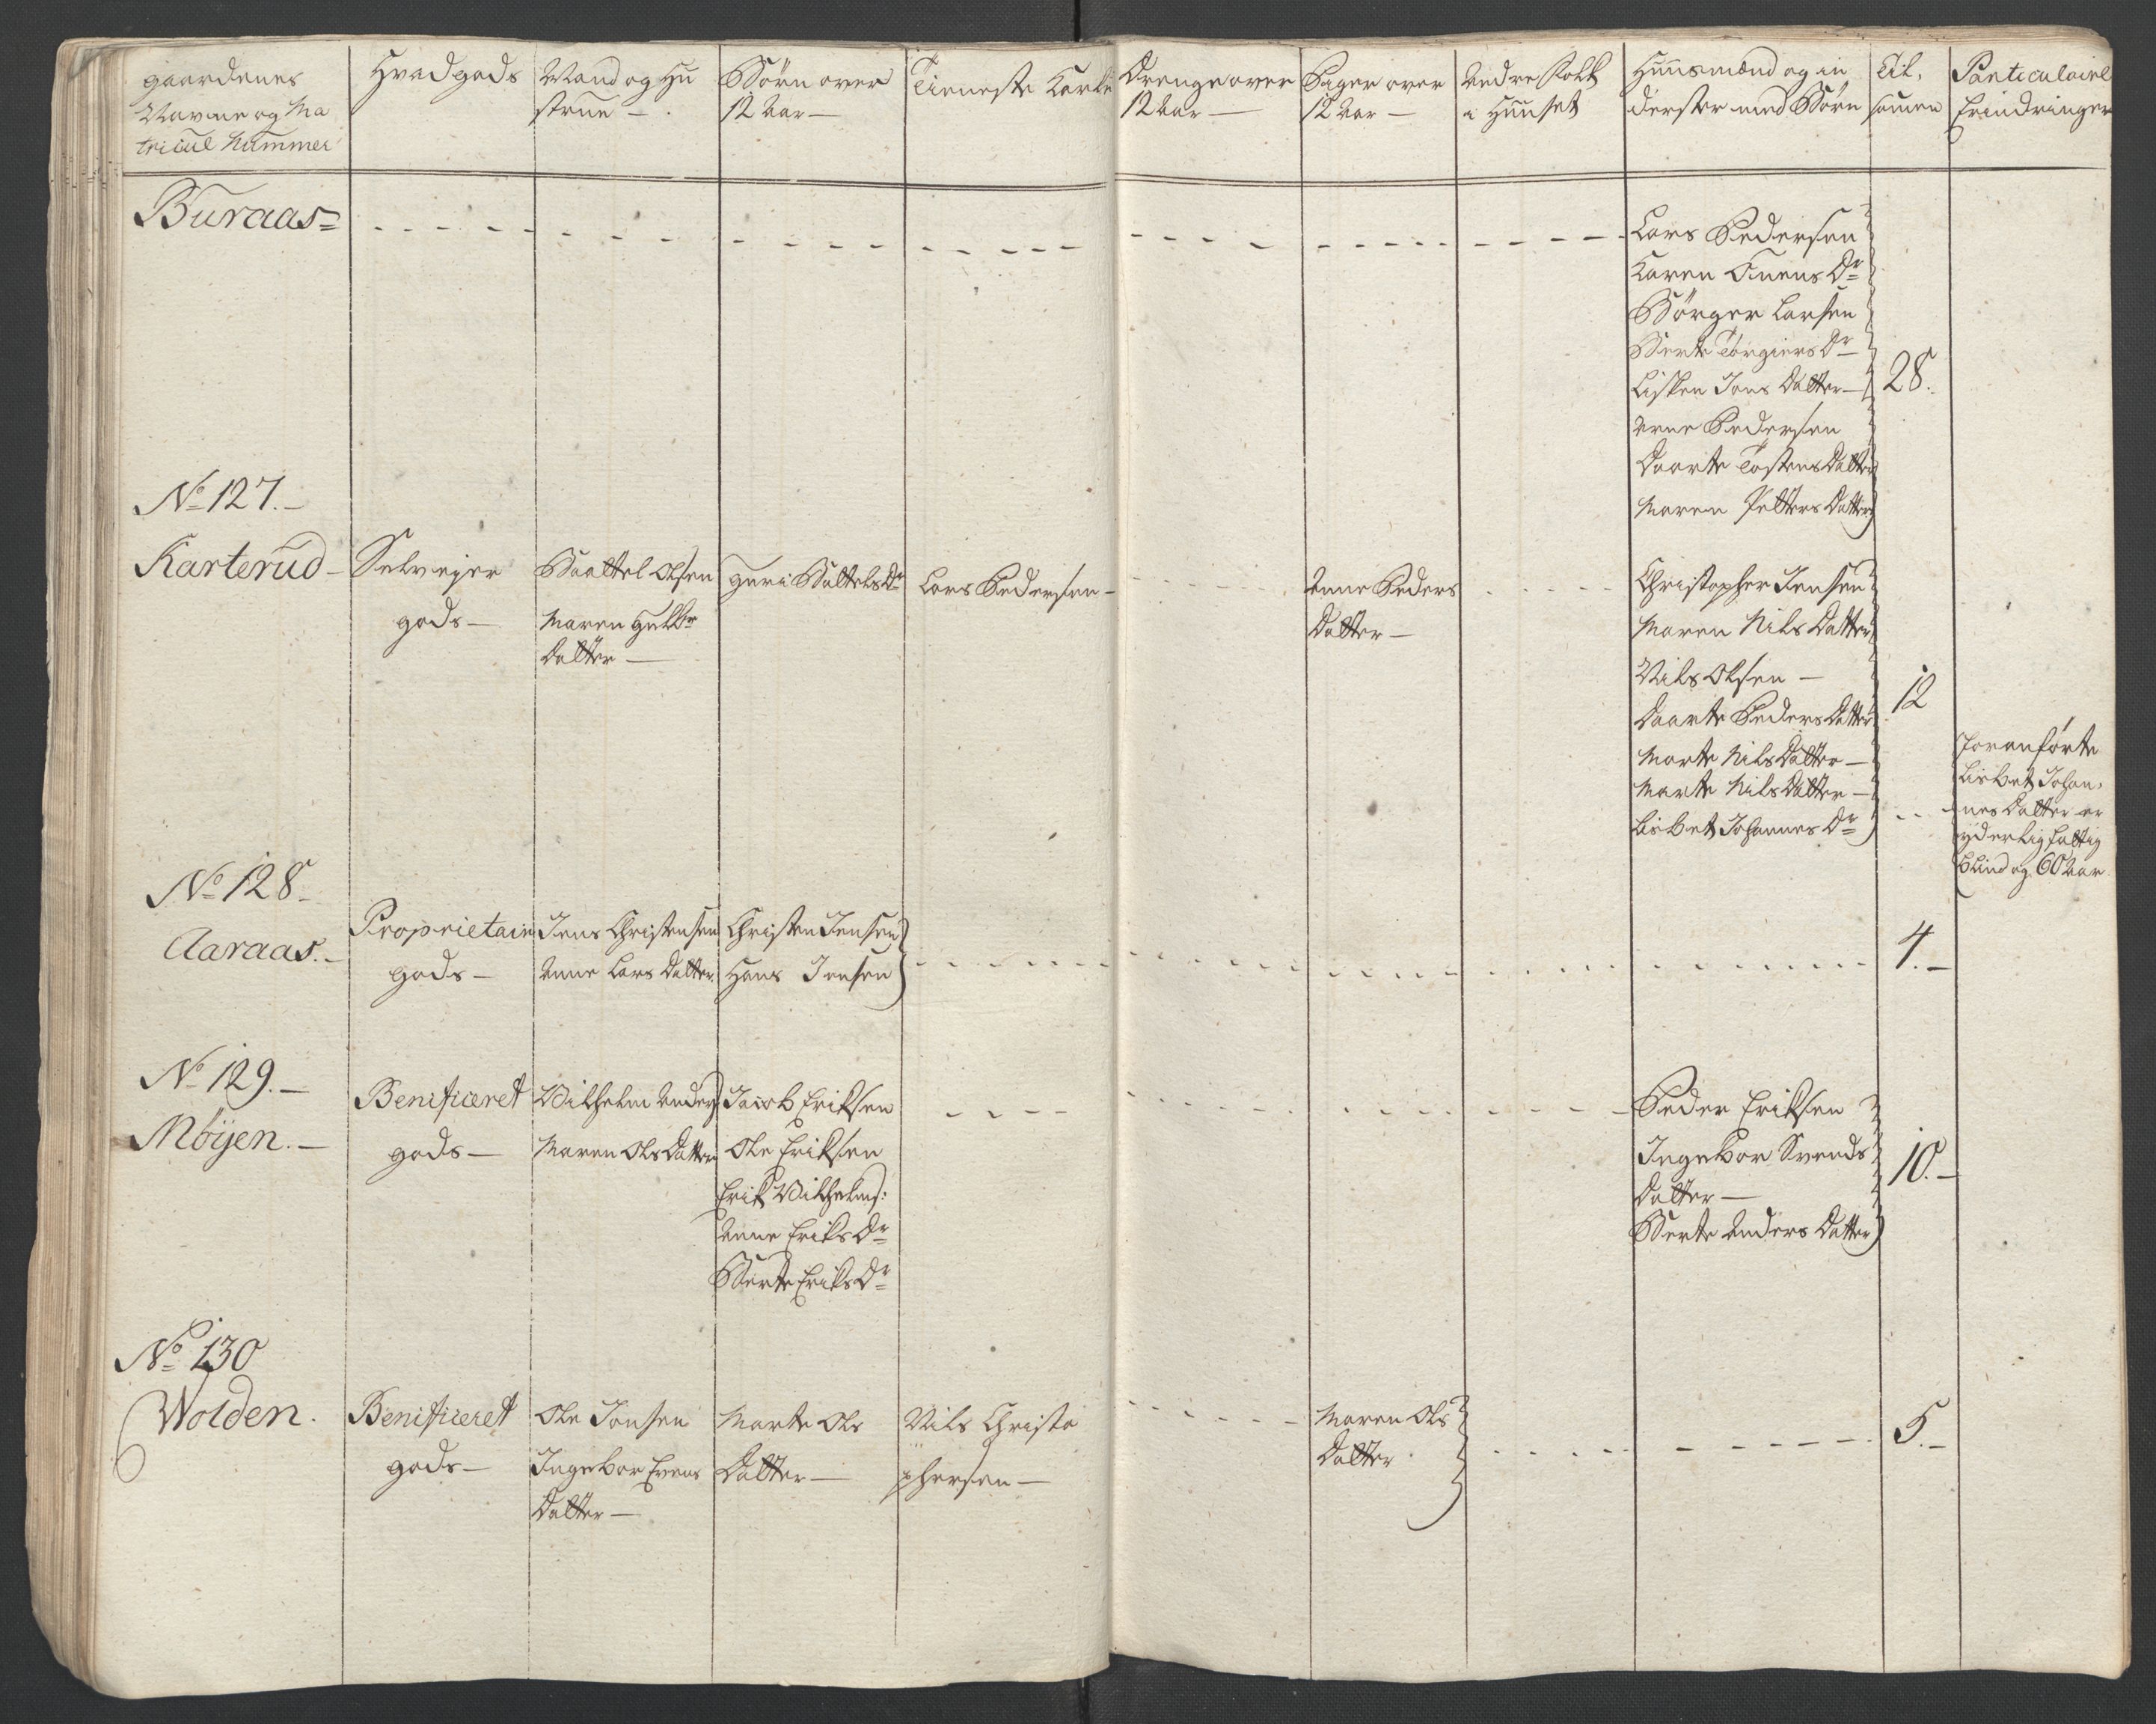 gaardenes
Navne og Ma
tricul Nummer
Hvad gods
Mand og Hu
strue -
Börn over
12 Aar -
Tieneste Karle
Drenge over
12 Aar -
Piger over
12 Aar -
Andre Folk
i Huuset
Huusmænd og in
derster med Börn
Til,
samen
Particulaire
Erindringer
Buraas=
Lars Pedersen
Karen Evens Dr
Börger Larsen
Berte Torgiers Dr
Lisken Jons Datter -
Arne Pedersen
Daarte Tostens Datter
Maren Petters Datter
28.
No 127.-
Karterud -
Selvejer
gods -
Baaltel Olsen
Maren Gulbr
Datter -
Guri Baltels Dr
Lars Pedersen -
Anne Peders
Datter -
Christopher Jensen
Maren Nils Datter
Nils Olsen -
Daarte Peders Datter
Marte Nils Datter -
Marte Nils Datter -
Lisbet Johannes Dr
12
Foranförte
Lisbet Johan,
nes Datter er
yderlig fattig
blind og 60 Aar
No 128 -
Aaraas. -
Proprietair
gods -
Jens Christensen
Anne Lars Datter
Christen Jensen
Hans Jensen
4. -
No 129. -
Möyen. -
Benificeret
gods -
Vilhelm Anders:
Maren Ols Datter
Jacob Eriksen
Ole Eriksen
Erik Vilhelms:
Anne Eriks Dr
Berte Eriks Dr
Peder Eriksen
Ingebor Svends
Datter -
Berte Anders Datter
10. -
No 130
Wolden.
Benificeret
gods -
Ole Jonsen
Ingebor Evens
Datter -
Marte Ols
Datter -
Nils Christo
phersen -
Maren Ols
Datter
5. -